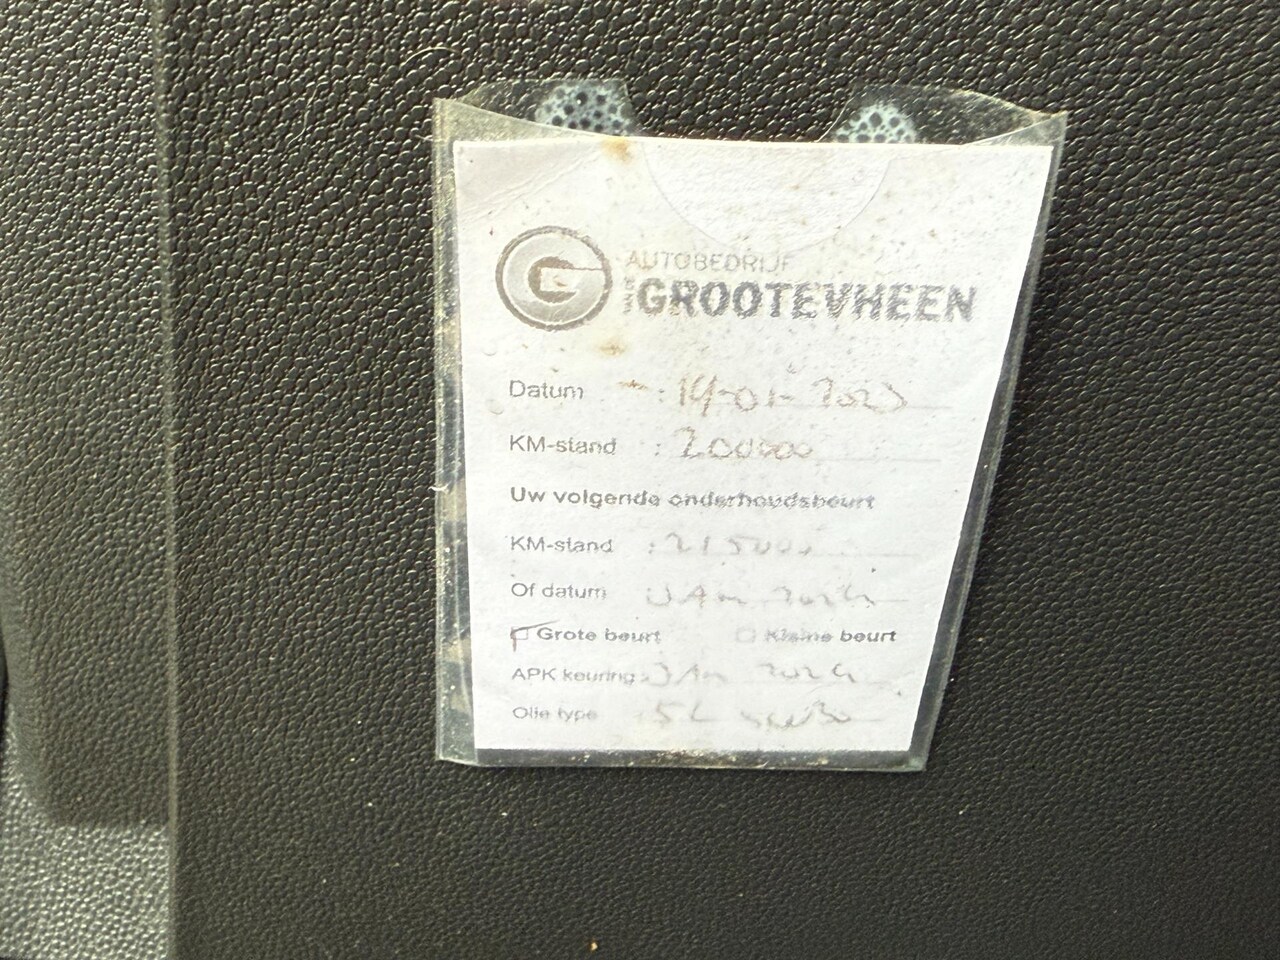 AUTOBEDRIJF
VAN GROOTEVHEEN
Datum : 19-01-2023
KM-stand : 200000
Uw volgende onderhoudsbeurt
KM-stand : 215000
Of datum JAN 2024
Grote beurt Kleine beurt
APK keuring: JAN 2024
Olie type 5L